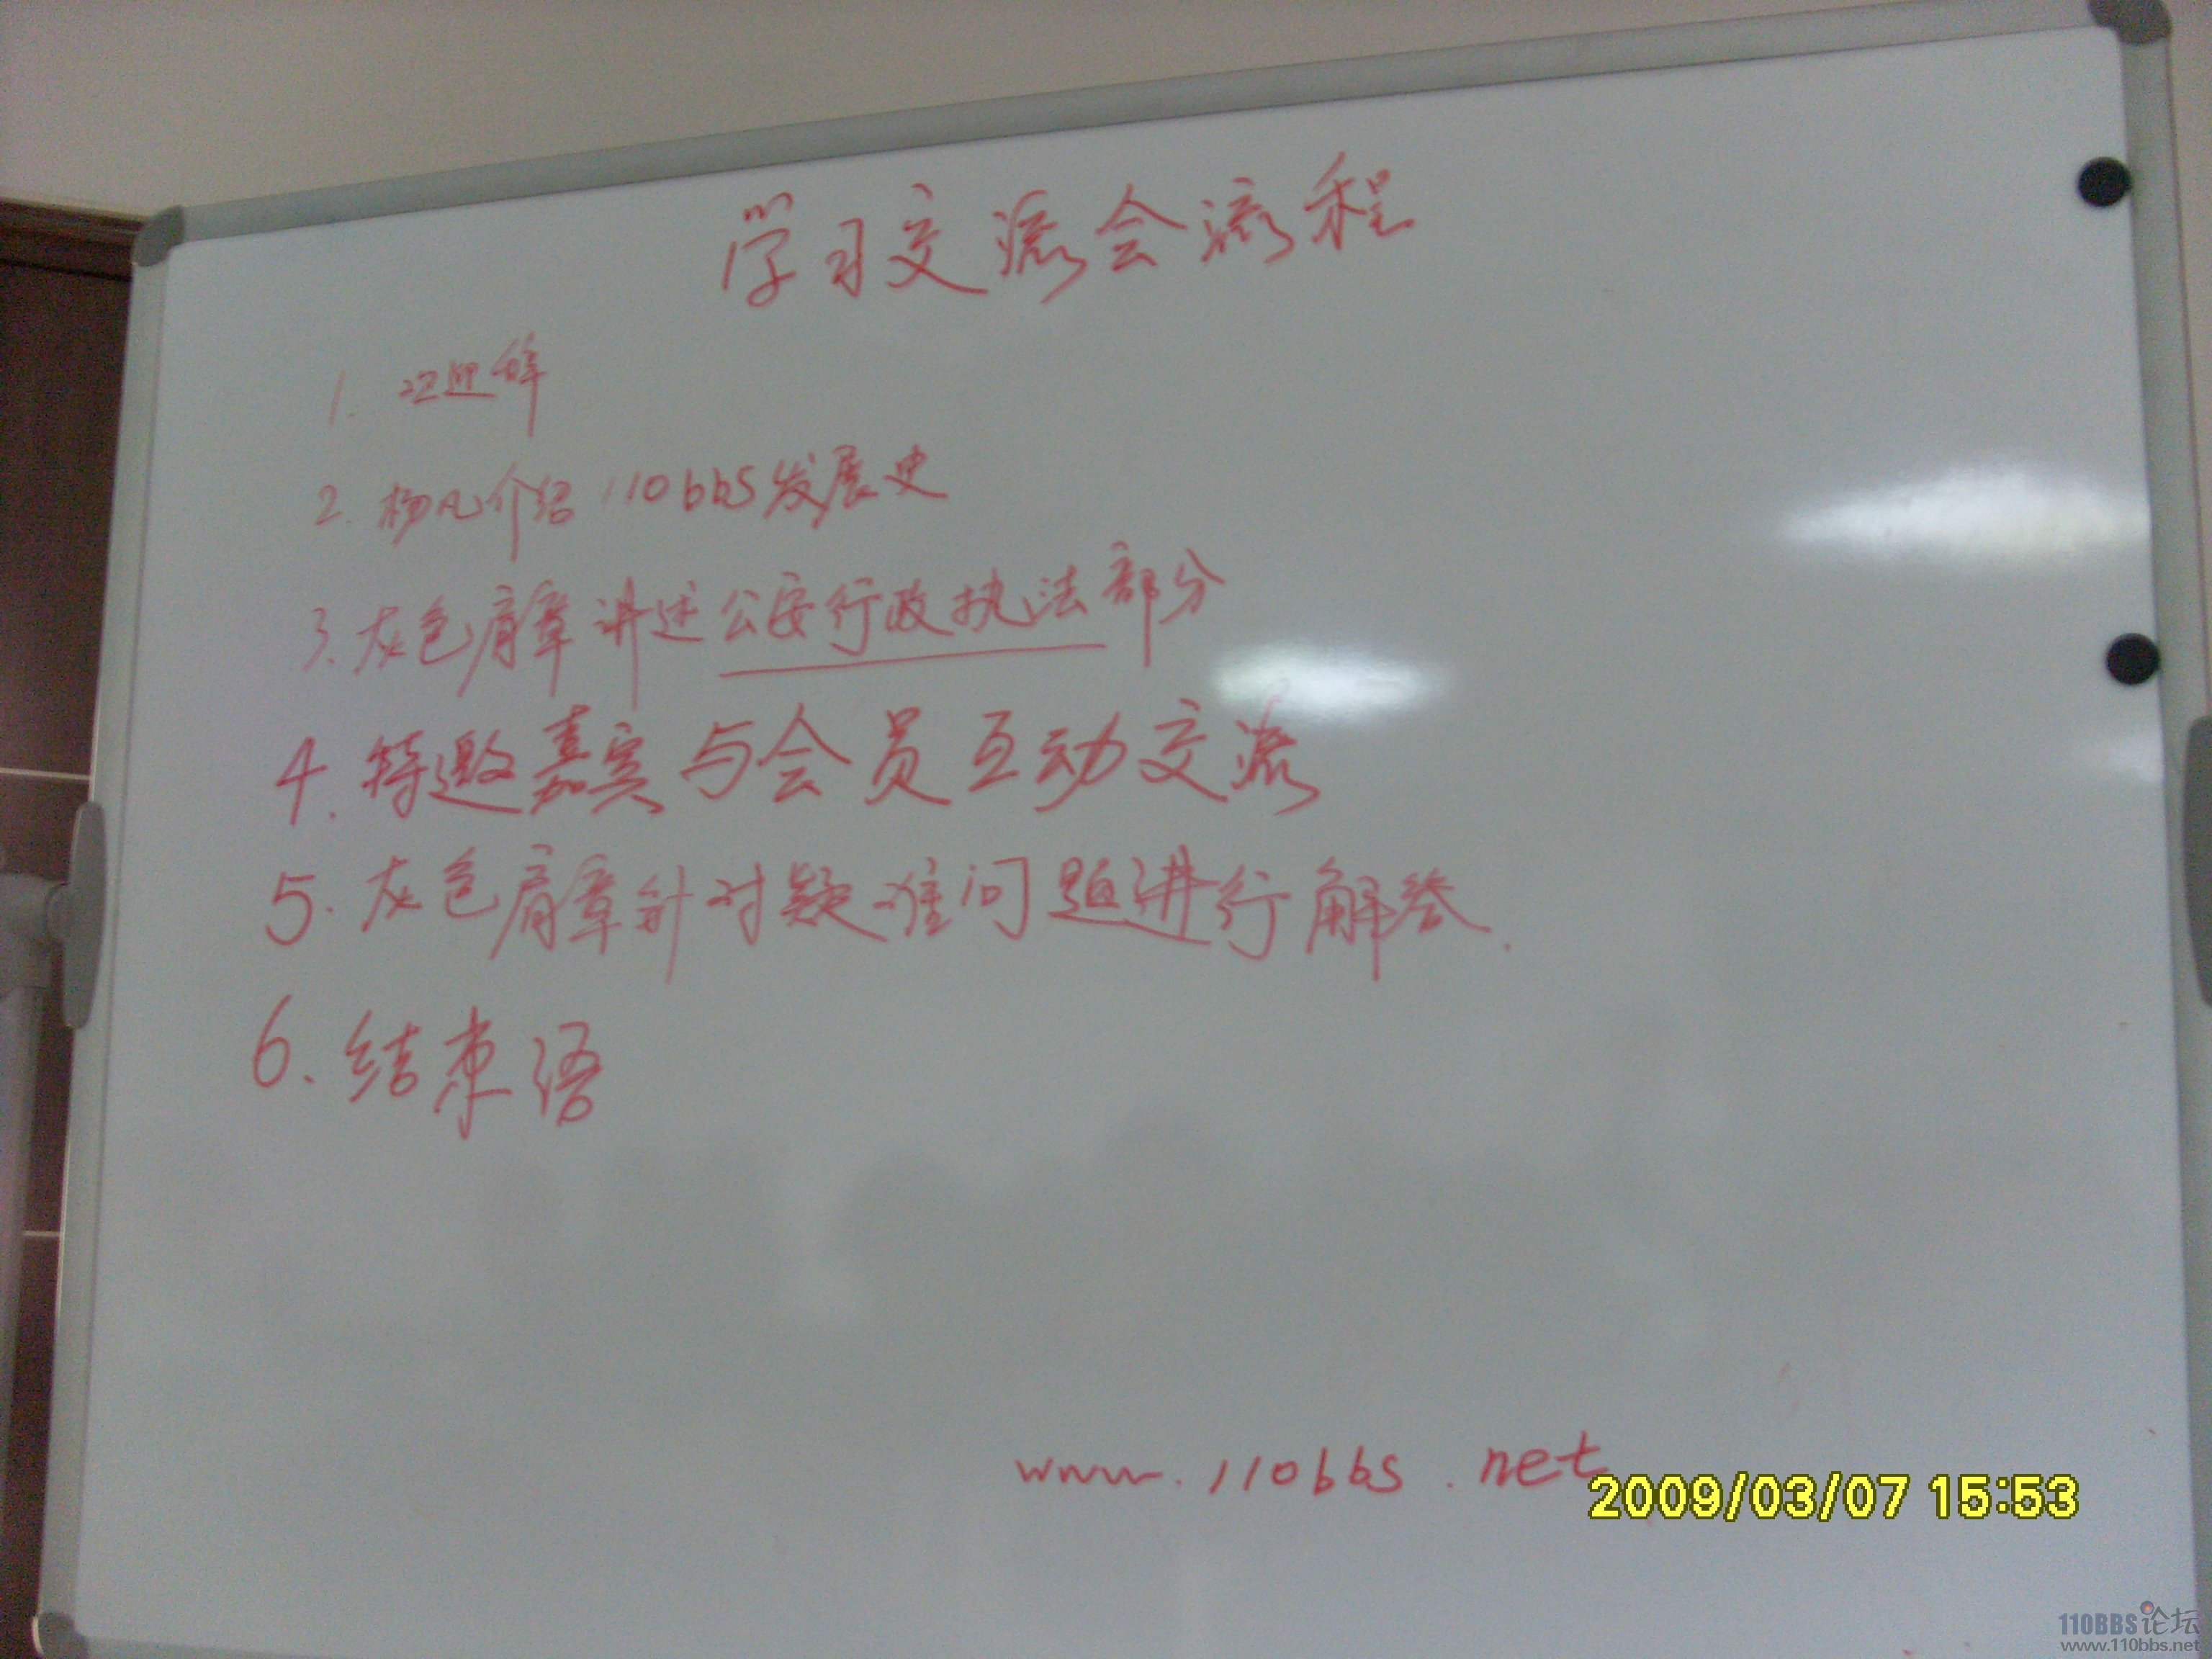 学习交流会流程
1. 欢迎辞
2. 杨凡介绍110bbS发展史
3. 灰色肩章讲述公安行政执法部分
4. 特邀嘉宾与会员互动交流
5. 灰色肩章针对疑难问题进行解答.
6. 结束语
www.110bbs.net
2009/03/07 15:53
110BBS论坛
www.110bbs.net